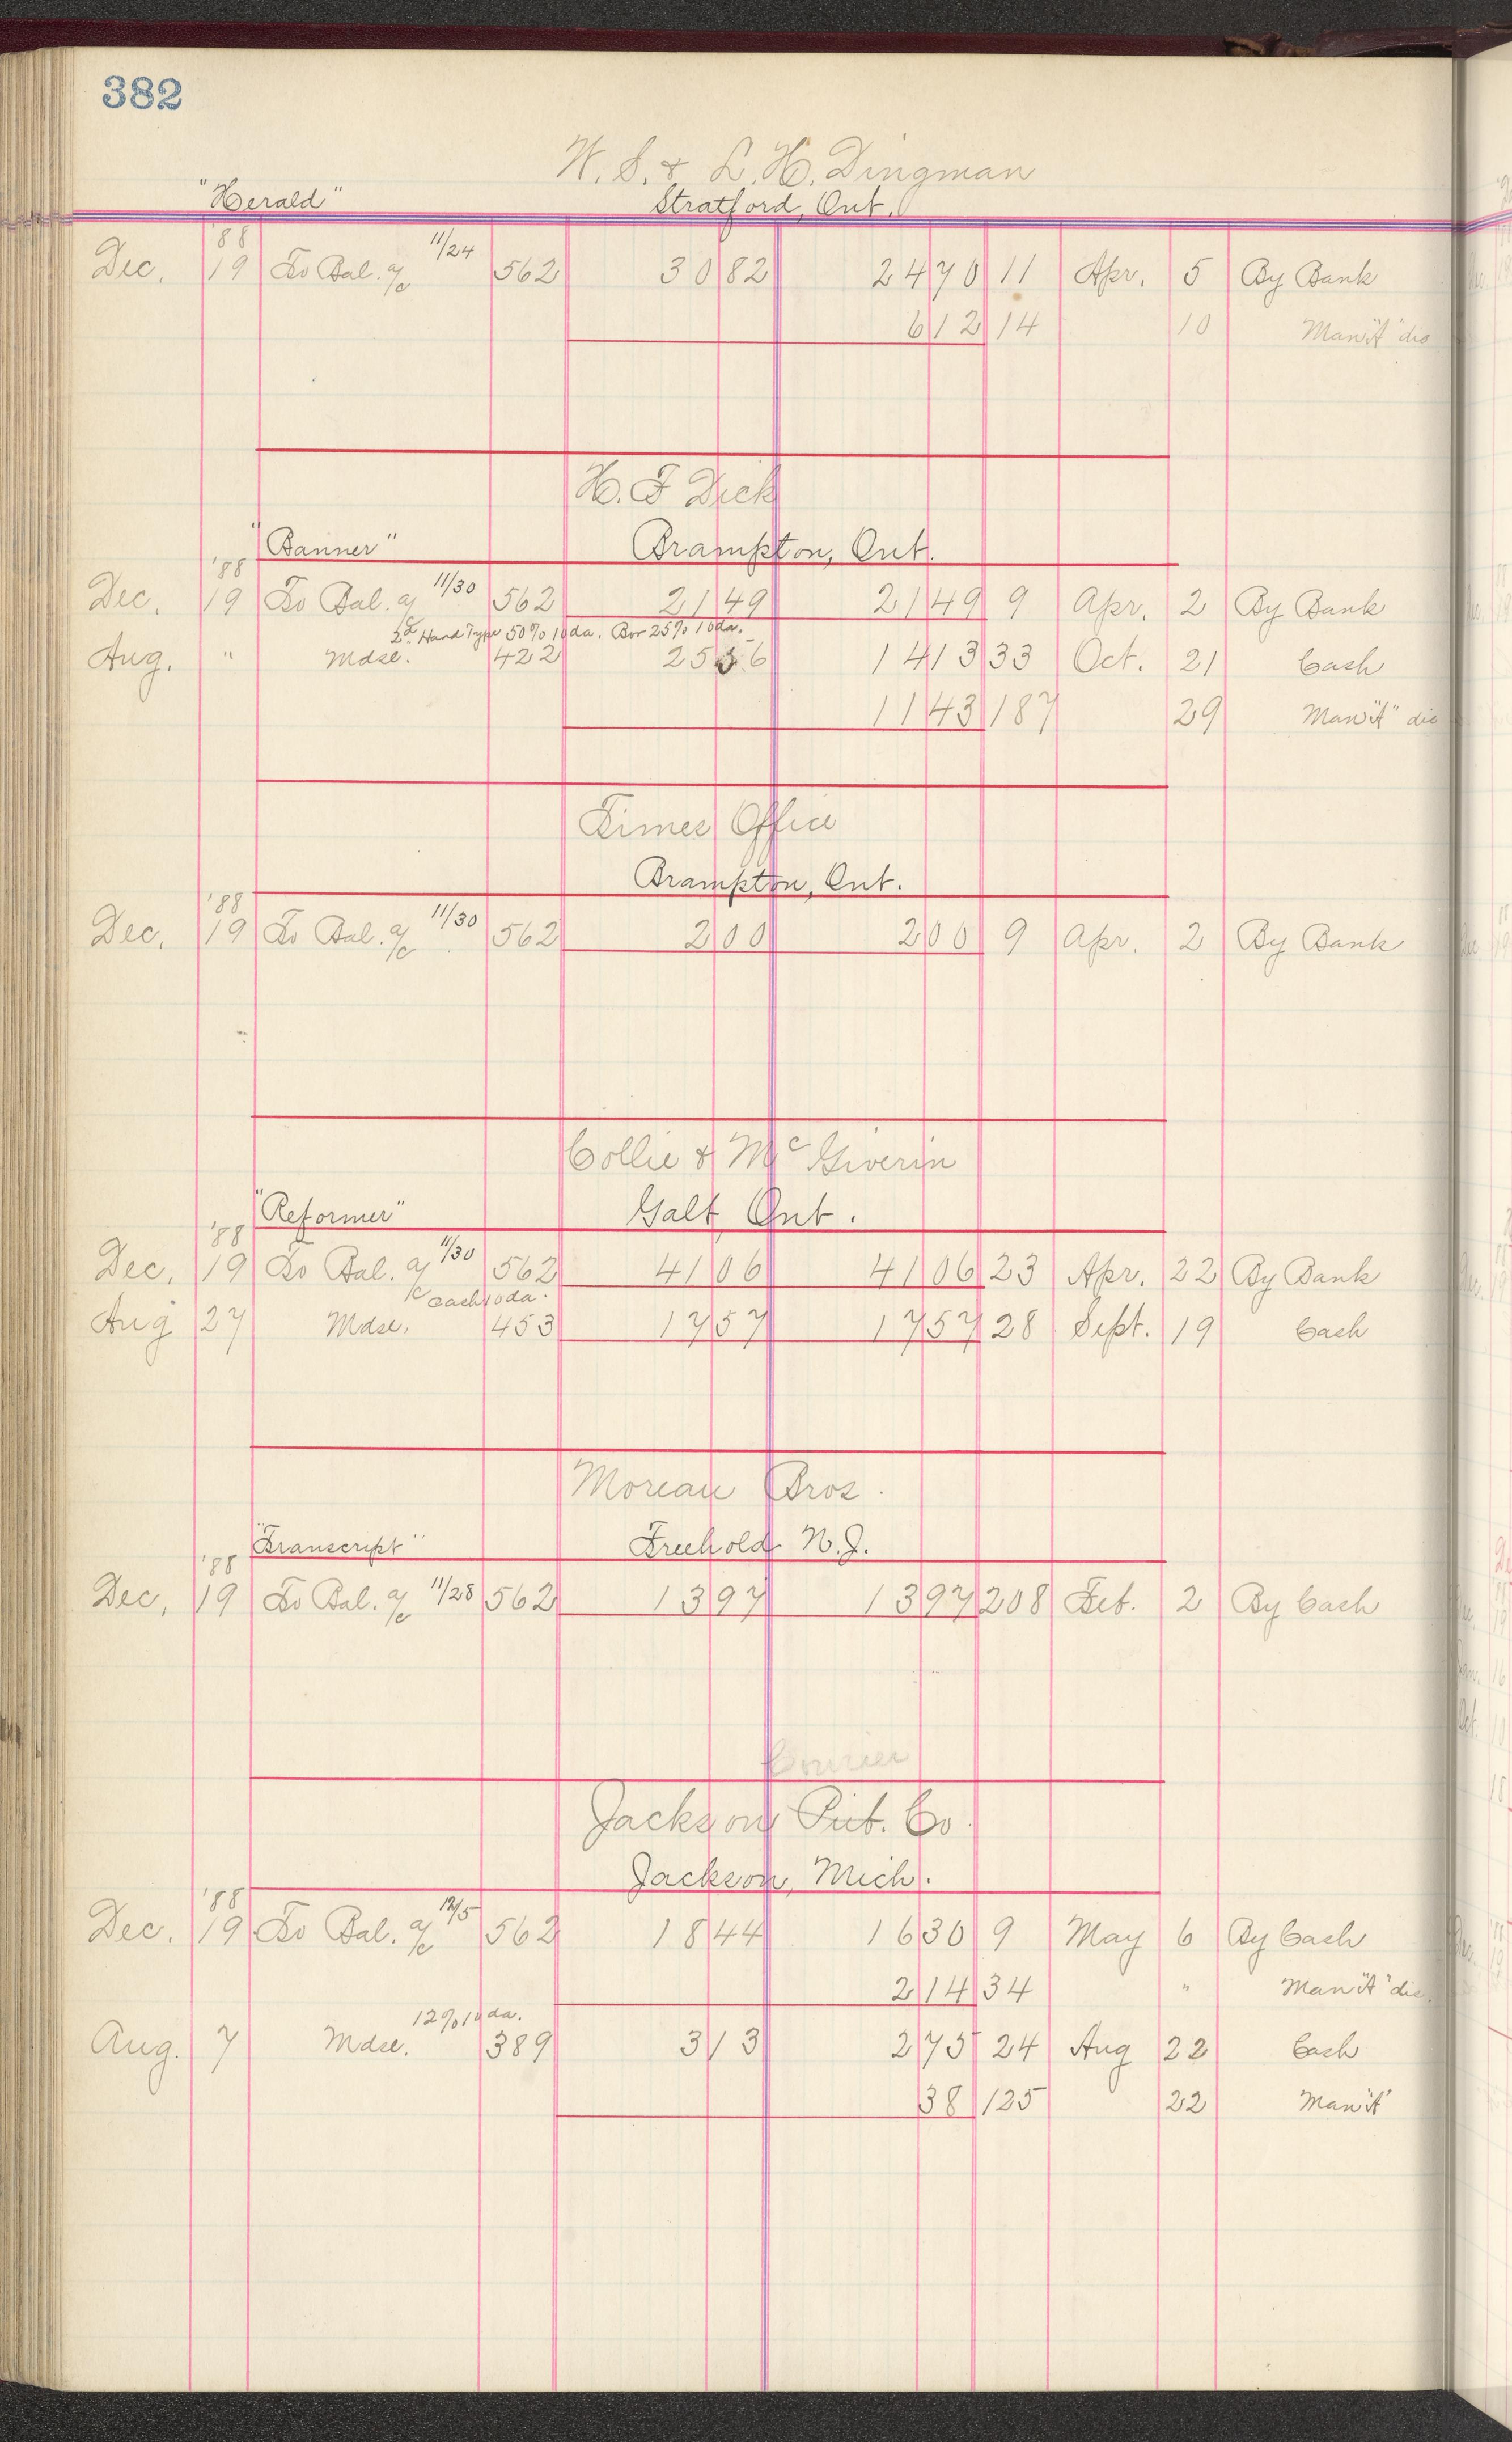 382
W. S. & L. H. Dingman
"Herald" Stratford, Ont.
'88
Dec. 19 To Bal. a/c 11/24 562 30 82 24 70 11 Apr. 5 By Bank
6 12 14 10 Man "A" dis
H. F Dick
"Banner" Brampton, Ont.
'88
Dec. 19 To Bal. a/c 11/30 562 21 49 21 49 9 Apr. 2 By Bank
2d Hand Type 50% 10da. Bor 25% 10da.
Aug. " Mdse. 422 25 56 14 13 33 Oct. 21 Cash
11 43 187 29 Man "A" dis
Times Office
Brampton, Ont.
'88
Dec. 19 To Bal. a/c 11/30 562 2 00 2 00 9 Apr. 2 By Bank
Collie & McGiverin
"Reformer" Galt Ont.
'88
Dec. 19 To Bal. a/c 11/30 562 41 06 41 06 23 Apr. 22 By Bank
Cash 10da.
Aug 27 Mdse. 453 17 57 17 57 28 Sept. 19 Cash
Moreau Bros.
"Transcript" Freehold N.J.
'88
Dec, 19 To Bal. a/c 11/28 562 13 97 13 97 208 Feb. 2 By Cash
Courier
Jackson Pub. Co.
Jackson, Mich.
'88
Dec. 19 To Bal. a/c 12/5 562 18 44 16 30 9 May 6 By Cash
2 14 34 " Man "A" dis.
12% 10da.
Aug. 7 Mdse. 389 3 13 2 75 24 Aug 22 Cash
38 125 22 Man "A"